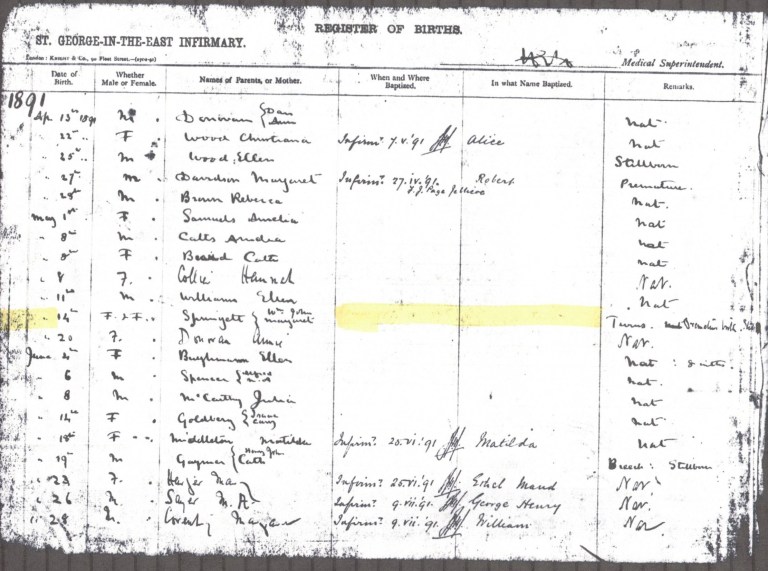 REGISTER OF BIRTHS.
ST. GEORGE-IN-THE-EAST INFIRMARY.
London: Knight & Co., 90 Fleet Street.
Medical Superintendent.
Date of Birth. Whether Male or Female. Names of Parents, or Mother. When and Where Baptised. In what Name Baptised. Remarks.
1891
Ap. 13th 1891 M. Donovan { Dan Ann Nat.
" 22nd F Wood Christiana Infirmy. 7.V.'91 Alice Nat
" 25th M Wood, Ellen Stillborn
" 27th M Davidson Margaret Infirmy. 27.IV.'91. Robert Premature.
" 28th M. Brown Rebecca Nat.
May 1st F. Samuels Amelia Nat
" 8th M. Catts Amelia Nat
" 8th F Catts Nat
" 8 F. Collie Hannah Nat.
" 11th M Williams Ellen Nat
" 14th F. & F. Springett { Wm. John Margaret Twins.
" 20 F. Donovan Annie Nat.
June 4th F Ellen Nat
" 6 M Spencer { Nat.
" 8 M McCarthy Julia Nat
" 14th F Goldberg { Nat.
" 18th F Middleton Matilda Infirmy. 20.VI.'91 Matilda Nat
" 19th M { Henry John Cath Breech: Stillborn
" 23 F. Mary Infirmy. 25.VI.'91 Ethel Maud Nat.
" 26 M. Sayer M.A. Infirmy. 9.VII.'91. George Henry Nat.
" 28 M. Infirmy. 9.VII.'91. William Nat